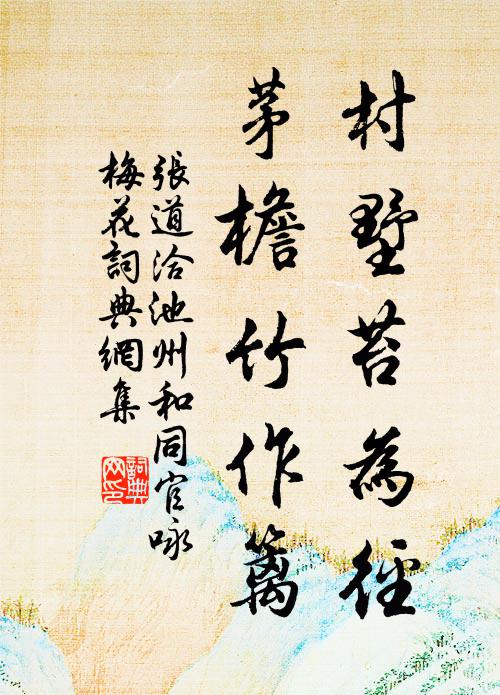 村墅苔為徑
茅檐竹作籬
張道洽池州和同官咏
梅花詞典網集
詞典網印